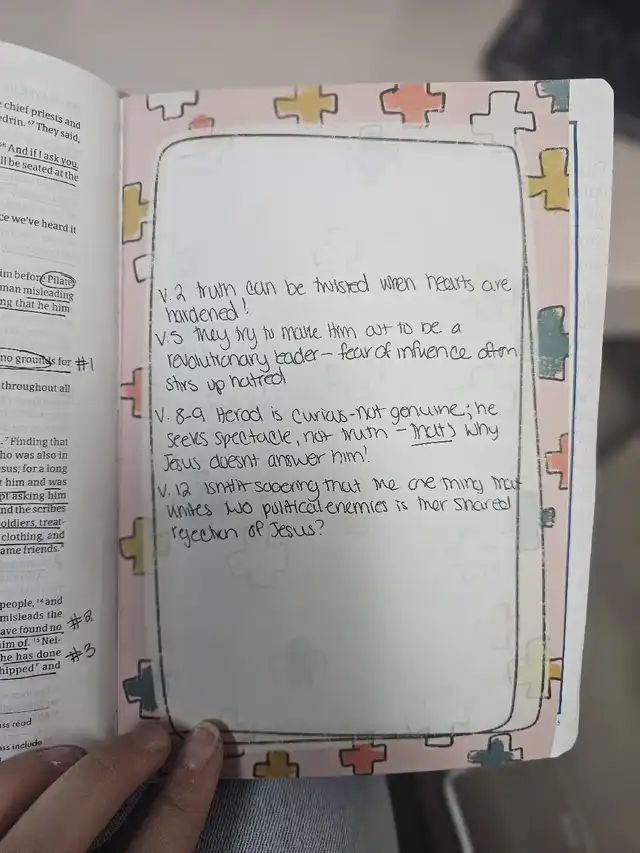 chief priests and
edrin. 67 They said,
68 And if I ask you,
ll be seated at the
ce we've heard it
im before Pilate
man misleading
ng that he him
no grounds for #1
throughout all
. 7 Finding that
ho was also in
sus; for a long
t him and was
pt asking him
nd the scribes
oldiers, treat-
clothing, and
ame friends.
people, 14 and
misleads the
ave found no #2
im of. 15 Nei-
he has done #3
hipped" and
ss read
ss include
V. 2 Truth can be twisted when hearts are
hardened!
V. 5 They try to make Him out to be a
revolutionary leader - fear of influence often
stirs up hatred
V. 8-9 Herod is curious-not genuine; he
seeks spectacle, not truth - that's why
Jesus doesnt answer him!
V. 12 isn't it sobering that the one thing that
unites two political enemies is their shared
rejection of Jesus?